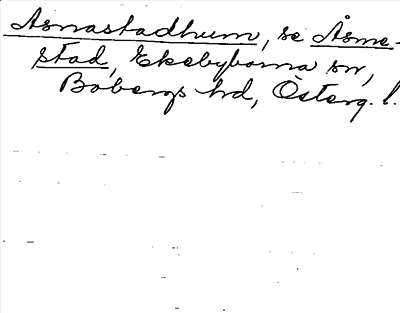 Asnastadhum, se Åsme-
stad, Ekebyborna sn,
Bobergs hd, Österg. l.